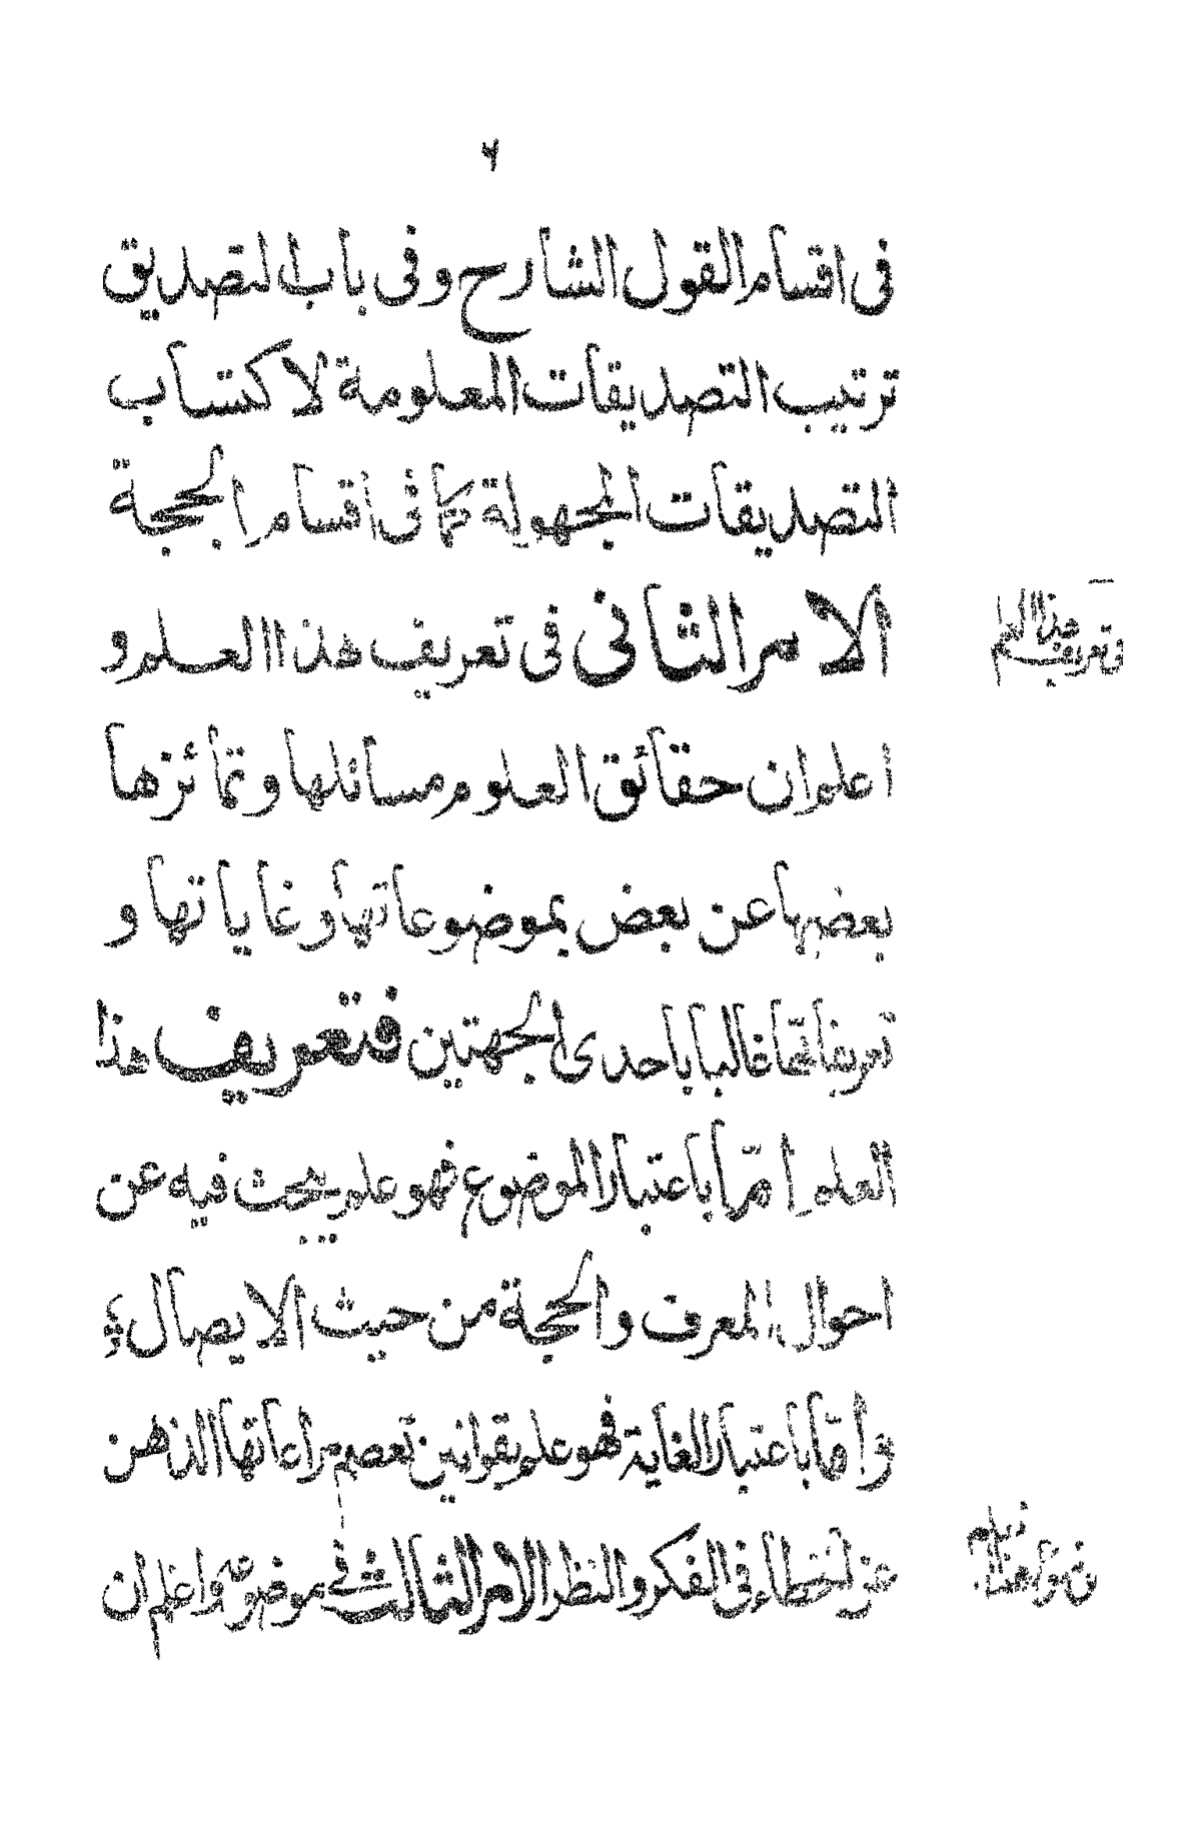 ۶
فى اقسام القول الشارح وفى باب التصديق
ترتيب التصديقات المعلومة لاكتساب
التصديقات المجهولة كما فى اقسام الحجة
الامر الثانى فى تعريف هذا العلم و
فى تعريف
هذا العلم
اعلم ان حقائق العلوم مسائلها وتمائزها
بعضها عن بعض بموضوعاتها وغاياتها و
تعريفاتها غالبا باحدى الجهتين فتعريف هذا
العلم امّا باعتبار الموضوع فهو علم يبحث فيه عن
احوال المعرف والحجة من حيث الايصال
وامّا باعتبار الغاية فهو علم بقوانين تعصم مراعاتها الذهن
عن الخطاء فى الفكر والنظر الامر الثالث فى موضوعه واعلم ان